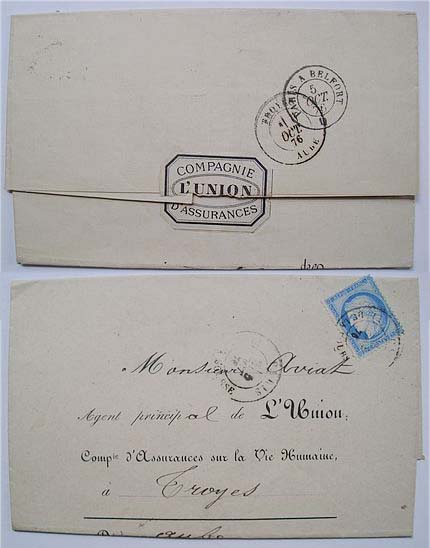 PARIS A BELFORT
5
OCT.
TROYES
OCT.
76
AUBE
COMPAGNIE
L'UNION
D'ASSURANCES
Monsieur Aviat
Agent principal de L'Union,
Comp^ie d'Assurances sur la Vie Humaine,
à Troyes